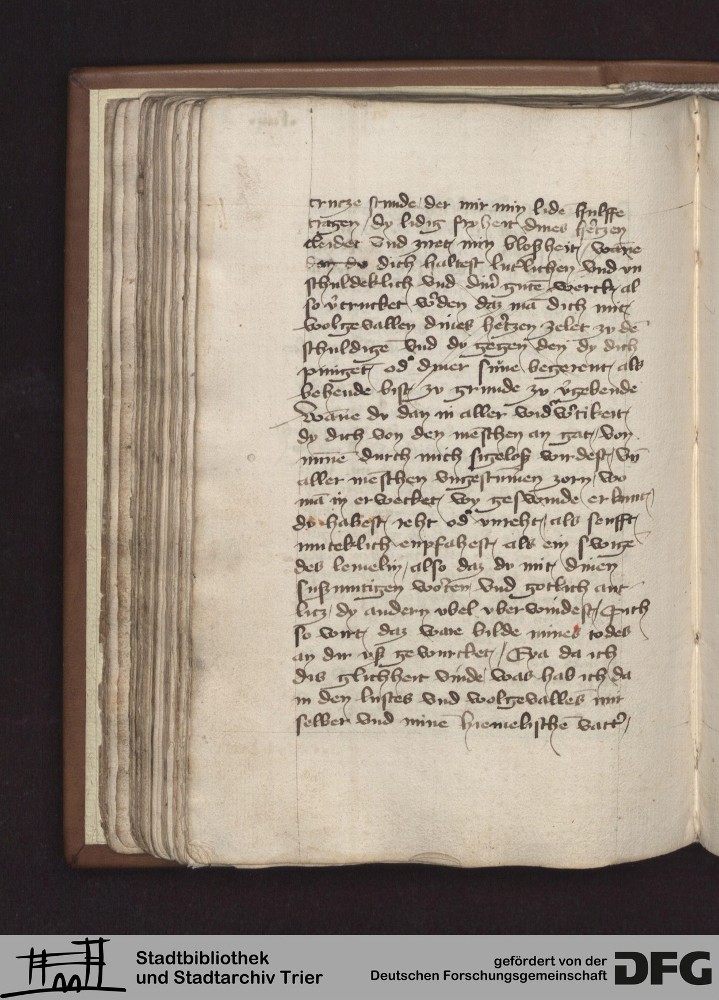 crucze stunde der mir min lidē hulffe
tragen / dy lidig fryheit dines hertzen
cleidet vnd zieret min bloßheit / wāne
dan du dich haltest luterlichen vnd vn
schuldeklich vnd din gutē werck / al
so v̓trucket w̓den daz mā dich mit
wolgevallen dines hertzen zelet zu dē
schuldigē vnd dy gegen den dy dich
piniget od̓ diner sune begerent / als
behende bist zu grunde zu v̓gebende
Wāne du dan in aller wid̓w̓tikeit
dy dich von den menschen an gat / von
minē durch mich sigeloß wirdest / vn̄
aller menschen vngestumen zorn / wo
mā in erwecket / wy geswinde er kumt /
du habest reht od̓ vnreht / als senfft
muteklich enpfahest als ein swigē
des lemelin / also daz du mit dinen
sußmutigen worten vnd gotlich ant
litz / dy andern vbel vber windest / Sich
so wirt daz ware bilde mines todes
an dir vß gewurcket / Eya da ich
dis glichheit vinde / was hab ich da
in den lustes vnd wolgevalles mir
selber vnd minē hiemelischē vatt̓ /
Stadtbibliothek
und Stadtarchiv Trier
gefördert von der
Deutschen Forschungsgemeinschaft
DFG